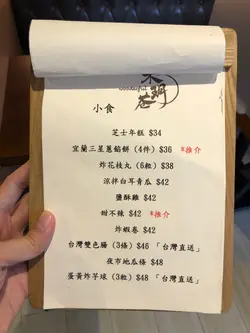 木
鍋
巷
小食
芝士年糕 $34
宜蘭三星蔥餡餅 (4件) $36 *推介
炸花枝丸 (6粒) $38
涼拌白耳青瓜 $42
鹽酥雞 $42
甜不辣 $42 *推介
炸蝦卷 $42
台灣雙色腸 (3條) $46 「台灣直送」
夜市地瓜條 $48
蛋黃炸芋球 (3粒) $48 「台灣直送」